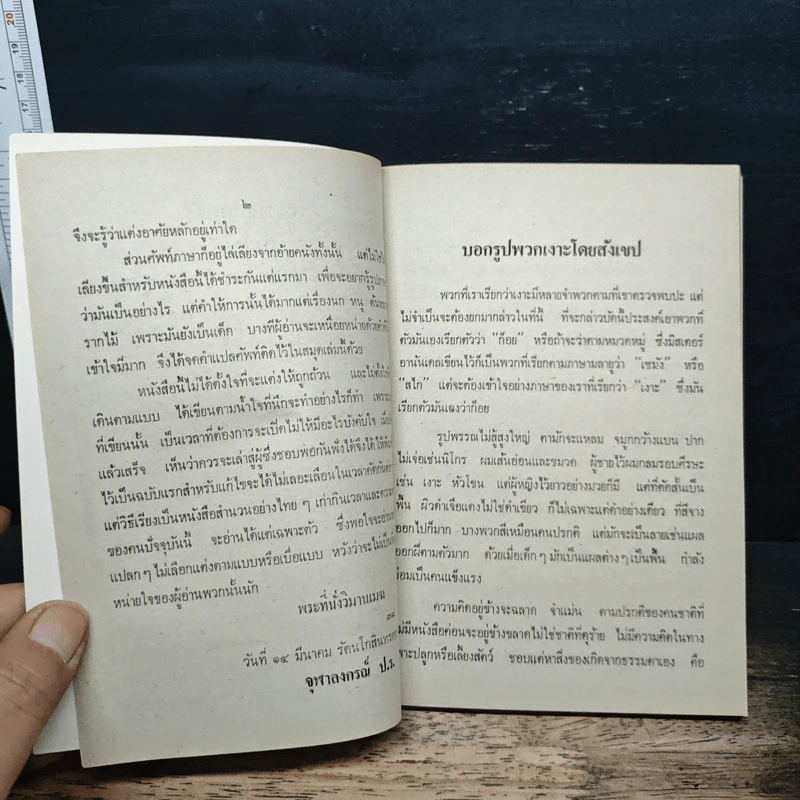 20
19
18
17
๒
จึงจะรู้ว่าแต่งอาศัยหลักอยู่เท่าใด
ส่วนศัพท์ภาษาก็อยู่ไล่เลียงจากอ้ายคนังทั้งนั้น แต่ไม่ใช่ไ
เลียงขึ้นสำหรับหนังสือนี้ได้ชำระกันแต่แรกมา เพื่อจะอยากรู้รูปภา
ว่ามันเป็นอย่างไร แต่คำให้การนั้นได้มากแต่เรื่องนก หนู ต้น
รากไม้ เพราะมันยังเป็นเด็ก บางทีผู้อ่านจะเหนื่อยหน่ายด้วยคำ
เข้าใจมีมาก จึงได้จดคำแปลศัพท์ติดไว้ในสมุดเล่มนี้ด้วย
หนังสือนี้ไม่ได้ตั้งใจที่จะแต่งให้ถูกถ้วน และไม่ตั้งใจ
เดินตามแบบ ได้เขียนตามน้ำใจที่นึกจะทำอย่างไรก็ทำ เพราะ
ที่เขียนนั้น เป็นเวลาที่ต้องการจะเบิดไม่ให้มีอะไรบังคับใจ เมื่อ
แล้วเสร็จ เห็นว่าควรจะเล่าสู่ผู้ซึ่งชอบพอกันฟังได้จึงได้ให้
ไว้เป็นฉบับแรกสำหรับแก้ไขจะได้ไม่เลอะเลือนในเวลาคัดกันต่อ
แต่วิธีเรียงเป็นหนังสือสำนวนอย่างไทย ๆ เก่ากินเวลาและความ
ของคนปัจจุบันนี้ จะอ่านได้แต่เฉพาะตัว ซึ่งพอใจจะอ่าน
แปลก ๆ ไม่เลือกแต่งตามแบบหรือเบื่อแบบ หวังว่าจะไม่เป็น
หน่ายใจของผู้อ่านพวกนั้นนัก
พระที่นั่งวิมานเมฆ
วันที่ ๑๔ มีนาคม รัตนโกสินทรศก
จุฬาลงกรณ์ ป.ร.
บอกรูปพวกเงาะโดยสังเขป
พวกที่เราเรียกว่าเงาะมีหลายจำพวกตามที่เขาตรวจพบปะ แต่
ไม่จำเป็นจะต้องยกมากล่าวในที่นี้ ที่จะกล่าวบัดนี้ประสงค์เอาพวกที่
ตัวมันเองเรียกตัวว่า “ก็อย” หรือถ้าจะว่าตามหมวดหมู่ ซึ่งมิสเตอร์
อานันเดลเขียนไว้ก็เป็นพวกที่เรียกตามภาษามลายูว่า “เซมัง” หรือ
“สไก” แต่จะต้องเข้าใจอย่างภาษาของเราที่เรียกว่า “เงาะ” ซึ่งมัน
เรียกตัวมันเองว่าก็อย
รูปพรรณไม่สู้สูงใหญ่ ตามักจะแหลม จมูกกว้างแบน ปาก
ไม่เจ่อเช่นนิโกร ผมเส้นอ่อนและขมวด ผู้ชายไว้ผมกลมรอบศีรษะ
เช่น เงาะ หัวโขน แต่ผู้หญิงไว้ยาวอย่างมวยก็มี แต่ที่ตัดสั้นเป็น
พื้น ผิวดำเจือแดงไม่ใช่ดำเขียว ก็ไม่เฉพาะแต่ดำอย่างเดียว ที่สีจาง
ออกไปก็มาก บางพวกสีเหมือนคนปรกติ แต่มักจะเป็นลายเช่นแผล
ออกฝีตามตัวมาก ด้วยเมื่อเด็กๆ มักเป็นแผลต่างๆ เป็นพื้น กำลัง
ย่อมเป็นคนแข็งแรง
ความคิดอยู่ข้างจะฉลาด จำแม่น ตามปรกติของคนชาติที่
ไม่มีหนังสือค่อนจะอยู่ข้างขลาดไม่ใช่ชาติที่ดุร้าย ไม่มีความคิดในทาง
เพาะปลูกหรือเลี้ยงสัตว์ ชอบแต่หาสิ่งของเกิดจากธรรมดาเอง คือ